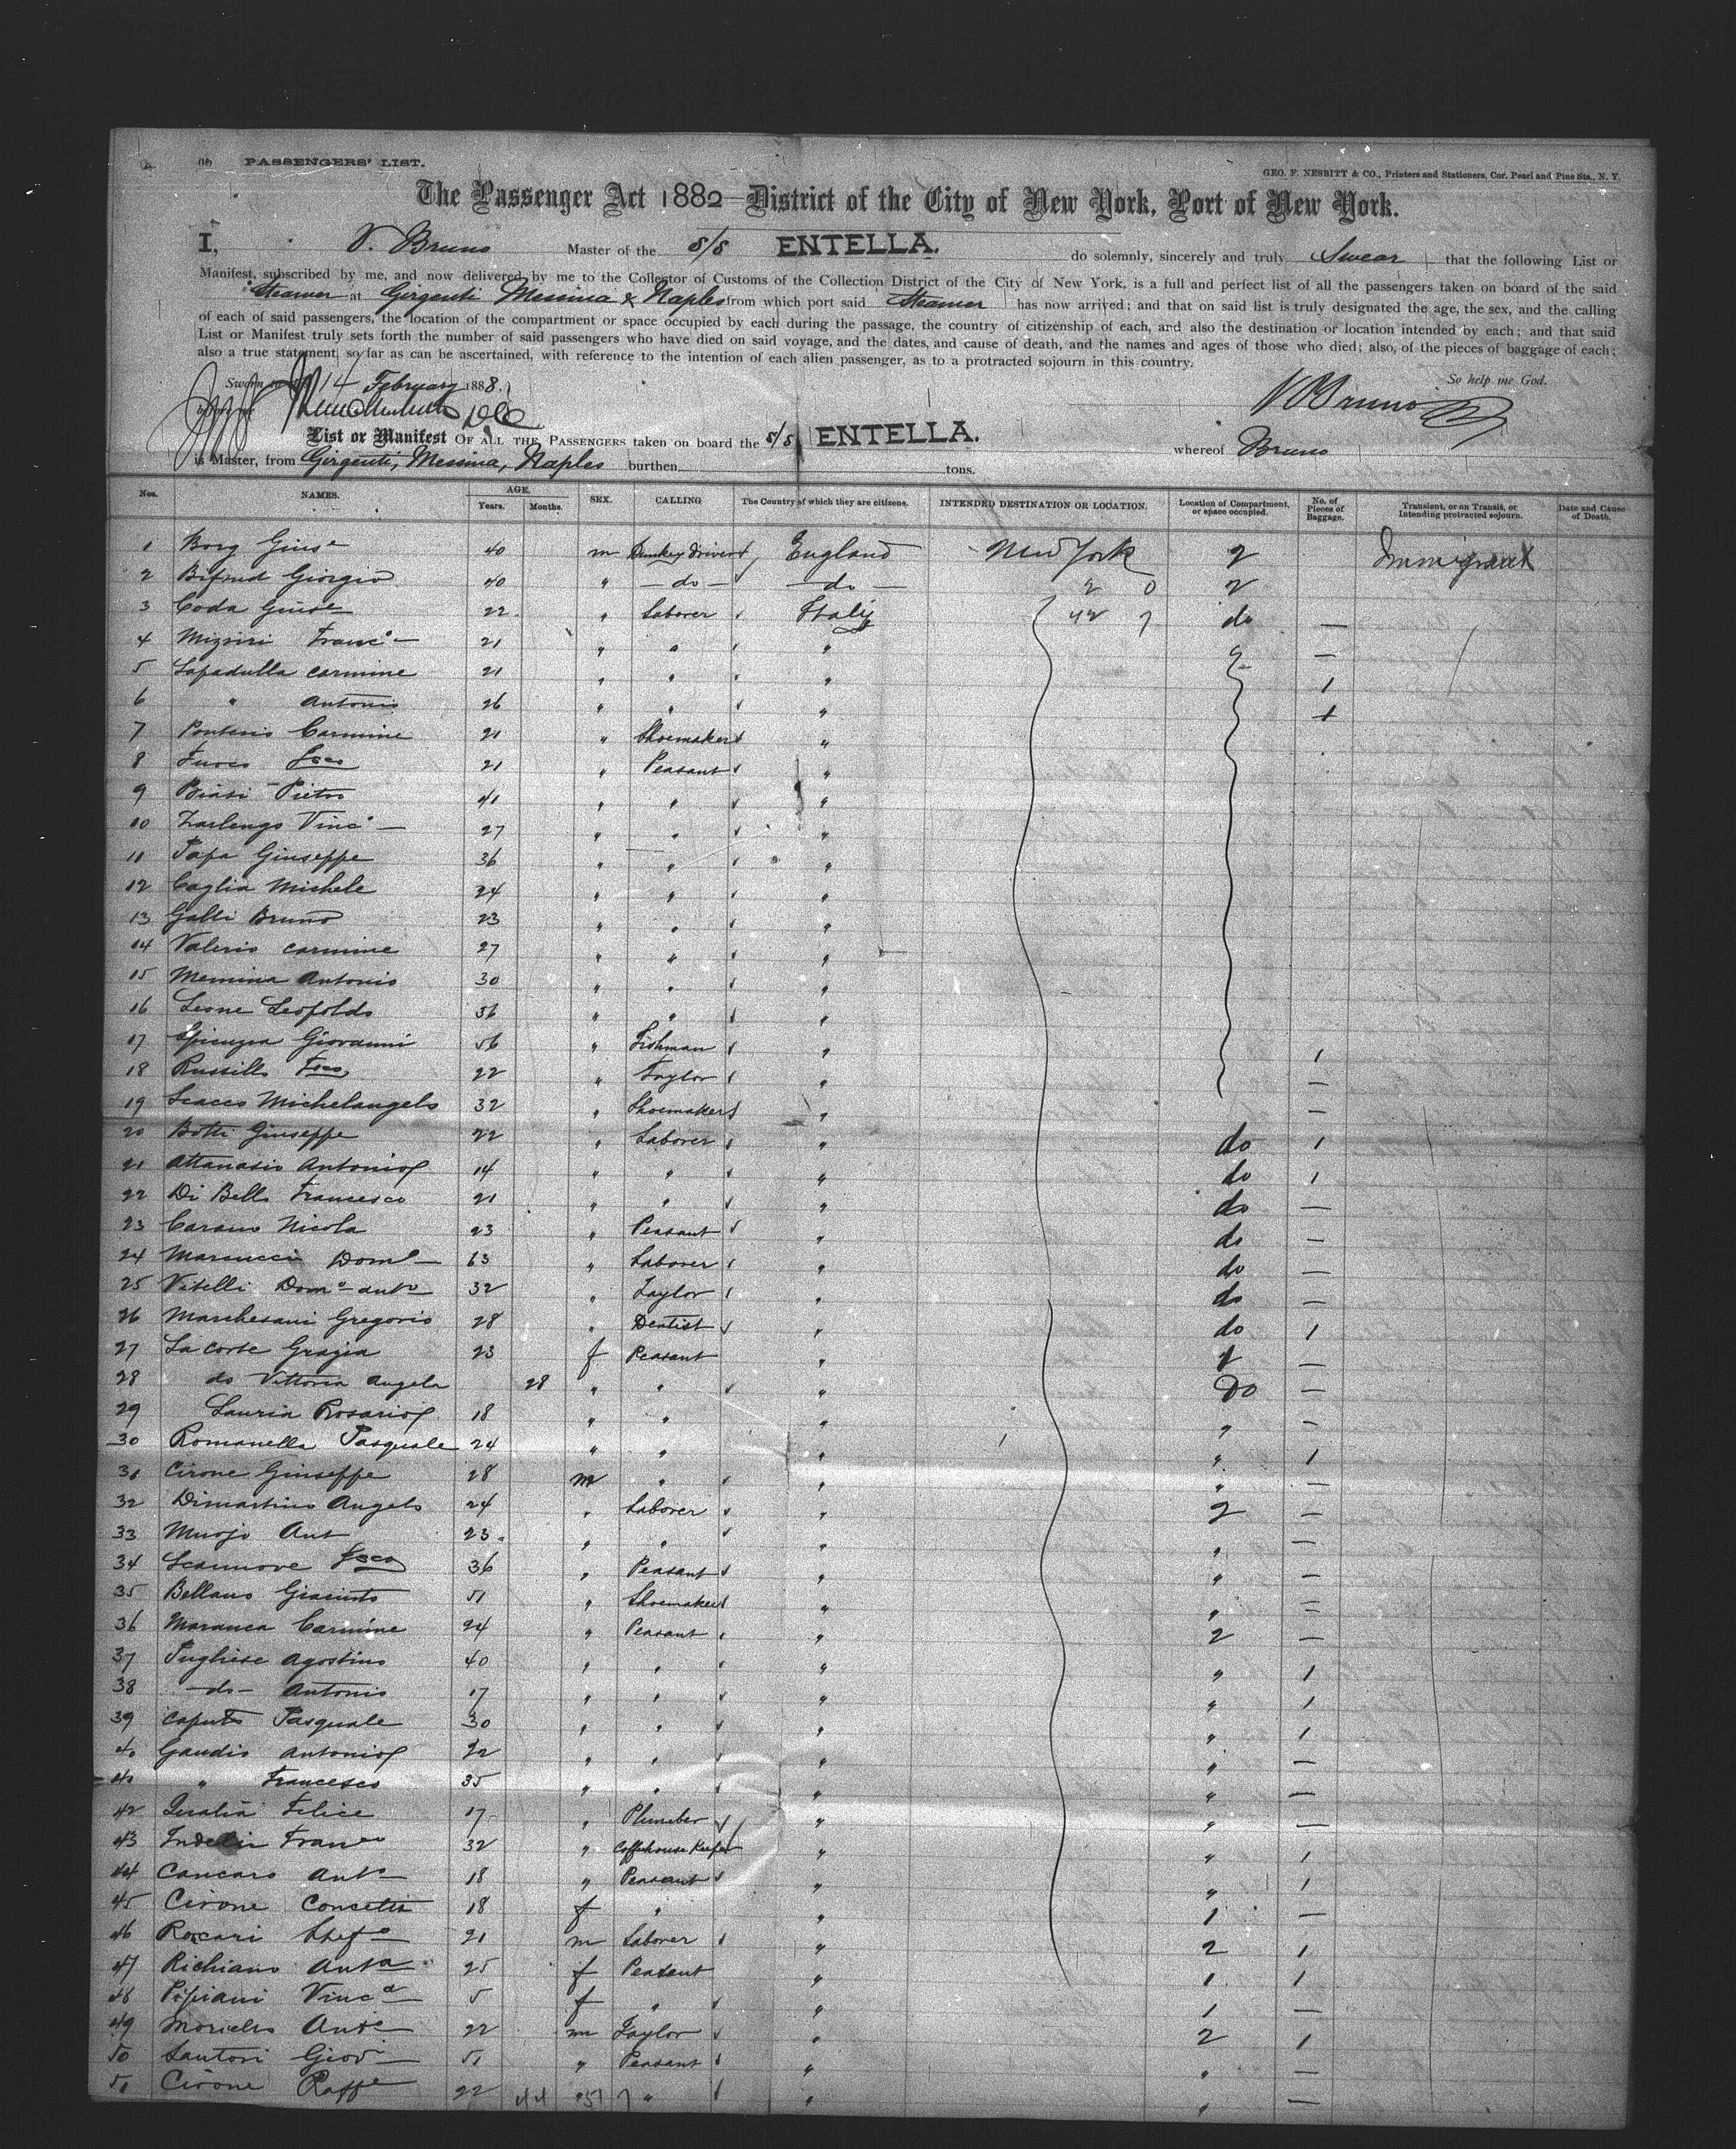 (18) PASSENGERS' LIST.
GEO. F. NESBITT & CO., Printers and Stationers, Cor. Pearl and Pine Sts., N. Y.
The Passenger Act 1882—District of the City of New York, Port of New York.
I, V. Bruno Master of the S/S ENTELLA. do solemnly, sincerely and truly Swear that the following List or
Manifest, subscribed by me, and now delivered by me to the Collector of Customs of the Collection District of the City of New York, is a full and perfect list of all the passengers taken on board of the said
Steamer at Girgenti Messina & Naples from which port said Steamer has now arrived; and that on said list is truly designated the age, the sex, and the calling
of each of said passengers, the location of the compartment or space occupied by each during the passage, the country of citizenship of each, and also the destination or location intended by each; and that said
List or Manifest truly sets forth the number of said passengers who have died on said voyage, and the dates, and cause of death, and the names and ages of those who died; also, of the pieces of baggage of each;
also a true statement, so far as can be ascertained, with reference to the intention of each alien passenger, as to a protracted sojourn in this country.
Sworn 14 February 1888. So help me God.
V Bruno
List or Manifest OF ALL THE PASSENGERS taken on board the S/S ENTELLA. whereof Bruno
is Master, from Girgenti, Messina, Naples burthen tons.
Nos. NAMES. AGE. Years. Months. SEX. CALLING The Country of which they are citizens. INTENDED DESTINATION OR LOCATION. Location of Compartment, or space occupied. No. of Pieces of Baggage. Transient, or an Transit, or Intending protracted sojourn. Date and Cause of Death.
1 Borg Giuse 40 m Dunkey driver England New York 2 Immigrant
2 Giorgio 40 " — do — — do — 2 0 2
3 Coda Giuse 22 " Laborer Italy 42 7 do —
4 Franco 21 " " " —
5 Lapadulla Carmine 21 " " " 1
6 " Antonio 26 " " " 1
7 Carmine 21 " Shoemaker "
8 Fsco 21 " Peasant "
9 Biasi Pietro 41 " " "
10 Zarlengo Vinco 27 " " "
11 Papa Giuseppe 36 " " "
12 Caglia Michele 24 " " "
13 Galli Bruno 23 " " "
14 Valerio Carmine 27 " " "
15 Antonio 30 " " "
16 Leone Leopoldo 36 " " "
17 Giovanni 56 " Fishman " 1
18 Russillo Fsco 22 " Taylor " —
19 Scacco Michelangelo 32 " Shoemaker " —
20 Botti Giuseppe 22 " Laborer " do 1
21 Attanasio Antonio 14 " " " do 1
22 Di Bello Francesco 21 " " " do —
23 Carano Nicola 23 " Peasant " do —
24 Marcucci Domo 63 " Laborer " do —
25 Vitelli Domo anto 32 " Taylor " do —
26 Marchesani Gregorio 28 " Dentist " do 1
27 La Corte Grazia 23 f Peasant " —
28 do Vittoria Angela 28 " " " Do —
29 Lauria Rosario 18 " " " " —
30 Romanella Pasquale 24 " " " " 1
31 Cirone Giuseppe 28 m " " " —
32 Dimartino Angelo 24 " Laborer " 2 —
33 Ant 23 " " " " —
34 Fsco 36 " Peasant " " —
35 Bellano Giacinto 51 " Shoemaker " " —
36 Maranca Carmine 24 " Peasant " 2 —
37 Pugliese Agostino 40 " " " " 1
38 —do— Antonio 17 " " " " 1
39 Caputo Pasquale 30 " " " " 1
40 Gaudio Antonio 22 " " " " —
41 " Francesco 35 " " " " —
42 Felice 17 " Plumber " " —
43 Franco 32 " Coffeehouse Keeper " " 1
44 Cancaro Anto 18 " Peasant " " 1
45 Cirone Concetta 18 f " " 1 —
46 21 m Laborer " 2 1
47 Richiano Anta 25 f Peasant " 1 1
48 Vinca 5 f " " 1 —
49 22 m Taylor " 2 1
50 Santori Giov 51 " Peasant " " —
51 Cirone Raffe 22 44 " " " —